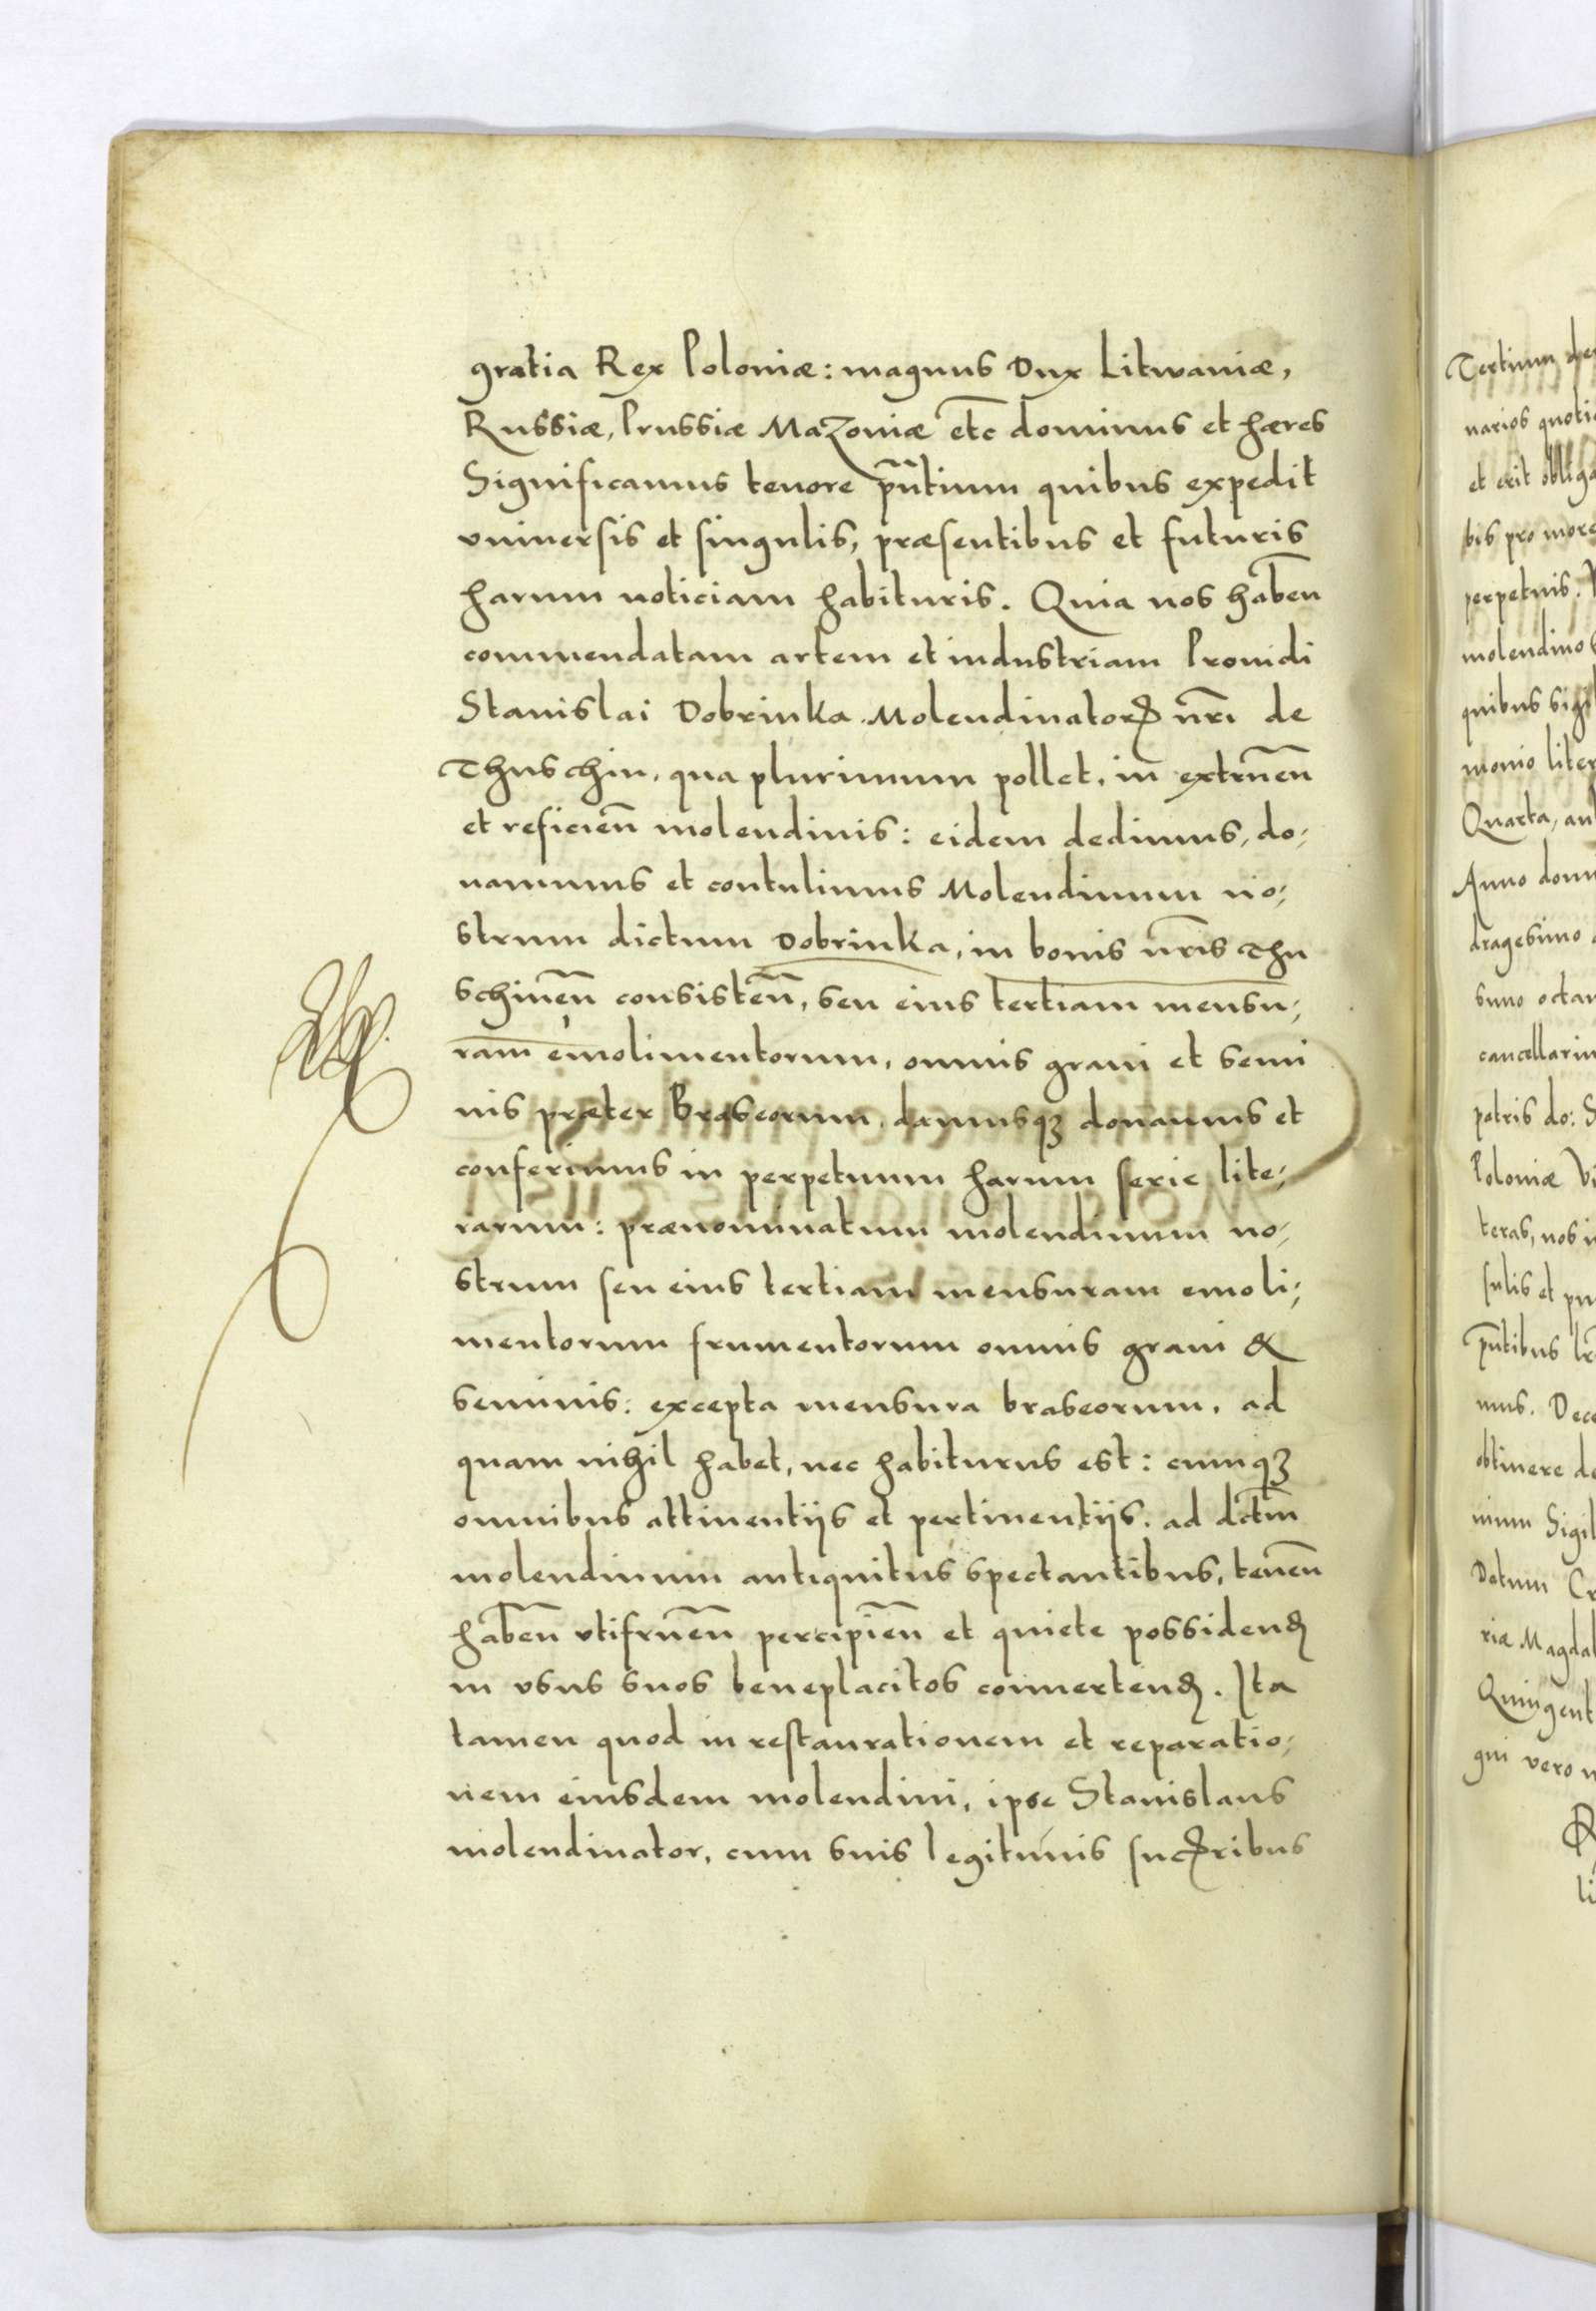 gratia Rex Poloniæ: magnus Dux Litwaniæ,
Russiæ, Prussiæ Mazoniæ etc̄ dominus et hæres
Significamus tenore pn̄tium quibus expedit
vniuersis et singulis, præsentibus et futuris
harum noticiam habituris. Quia nos habēn
commendatam artem et industriam Prouidi
Stanislai Dobrinka Molendinatorꝭ nr̄i de
Thuschin, qua plurimum pollet, in extruēn
et reficiēn molendinis: eidem dedimus, do,
nauimus et contulimus Molendinum no,
strum dictum Dobrinka, in bonis nr̄is Thu
schinēn consistēn, seu eius tertiam mensu,
ram emolimentorum, omnis grani et semi
nis præter Braseorum, damusqꝫ donamus et
conferimus in perpetuum harum serie lite,
rarum: prænominatum molendinum no,
strum seu eius tertiam mensuram emoli,
mentorum frumentorum omnis grani &
seminis: excepta mensura braseorum, ad
quam nihil habet, nec habiturus est: cumqꝫ
omnibus attinentijs et pertinentijs, ad dict̄m
molendinum antiquitus spectantibus, tenēn
habēn vtifruēn percipiēn et quiete possidenꝭ
in vsus suos beneplacitos conuertenꝭ. Ita
tamen quod in restaurationem et reparatio,
nem eiusdem molendini, ipse Stanislaus
molendinator, cum suis legitimis sucꝭribus
Tertium
narios
et erit
bis pro more
perpetuis.
molendino
quibus
monio
Quarta,
Anno
dragesimo
simo
patris do:
Poloniæ
teras, nos
sulis et
pn̄tibus
mus.
obtinere
nium
Datum
riæ
qui vero